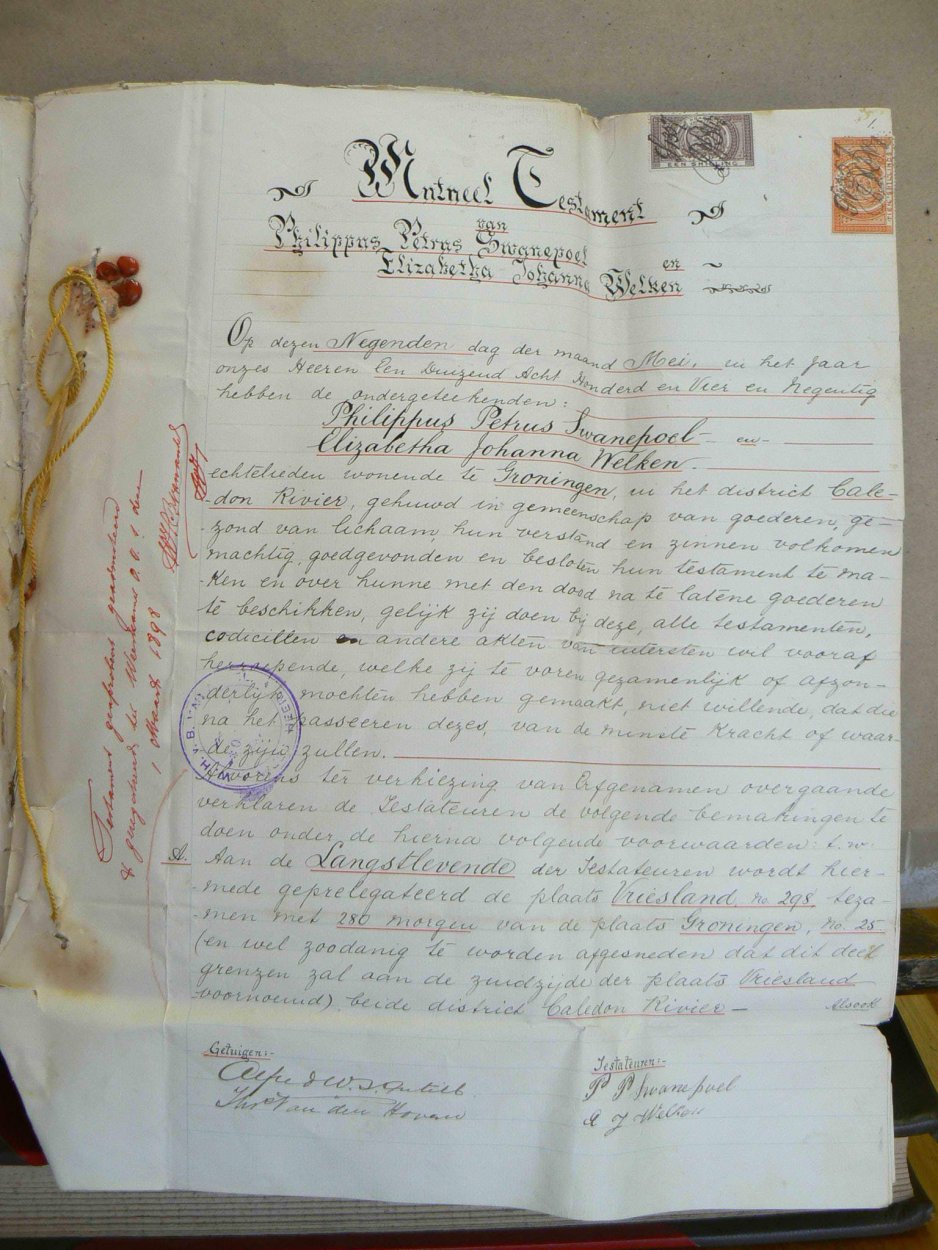 1.
EEN SHILLING
Mutueel Testament
van
Philippus Petrus Swanepoel
en
Elizabetha Johanna Welken
Op dezen Negenden dag der maand Mei, in het Jaar
onzes Heeren Een Duizend Acht Honderd en Vier en Negentig
hebben de ondergeteekenden:
Philippus Petrus Swanepoel en
Elizabetha Johanna Welken
echtelieden wonende te Groningen, in het district Cale-
-don Rivier, gehuwd in gemeenschap van goederen, ge-
-zond van lichaam, hun verstand en zinnen volkomen
machtig, goedgevonden en besloten hun testament te ma-
-ken en over hunne met den dood na te latene goederen
te beschikken, gelijk zij doen bij deze, alle testamenten,
codicillen en andere akten van uitersten wil vooraf
herroepende, welke zij te voren gezamenlijk of afzon-
-derlijk mochten hebben gemaakt, niet willende, dat die
na het passeeren dezes, van de minste Kracht of waar-
-de zijn zullen.
Alvorens ter verkiezing van Erfgenamen overgaande
verklaren de Testateuren de volgende bemakingen te
doen onder de hierna volgende voorwaarden: t.w.
A. Aan de Langstlevende der Testateuren wordt hier-
-mede geprelegateerd de plaats Vriesland No. 298, teza-
-men met 280 morgen van de plaats Groningen, No. 25
(en wel zoodanig te worden afgesneden dat dit deel
grenzen zal aan de zuidzijde der plaats Vriesland
voornoemd) beide district Caledon Rivier –
Alsook
Getuigen:-
Testateuren:-
P P Swanepoel
E J Welken
van den Hoven
Testament geregistreerd
1 Maart 1898